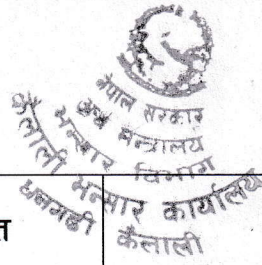 नेपाल सरकार
अर्थ मन्त्रालय
भन्सार विभाग
कैलाली भन्सार कार्यालय
धनगढी कैलाली
त